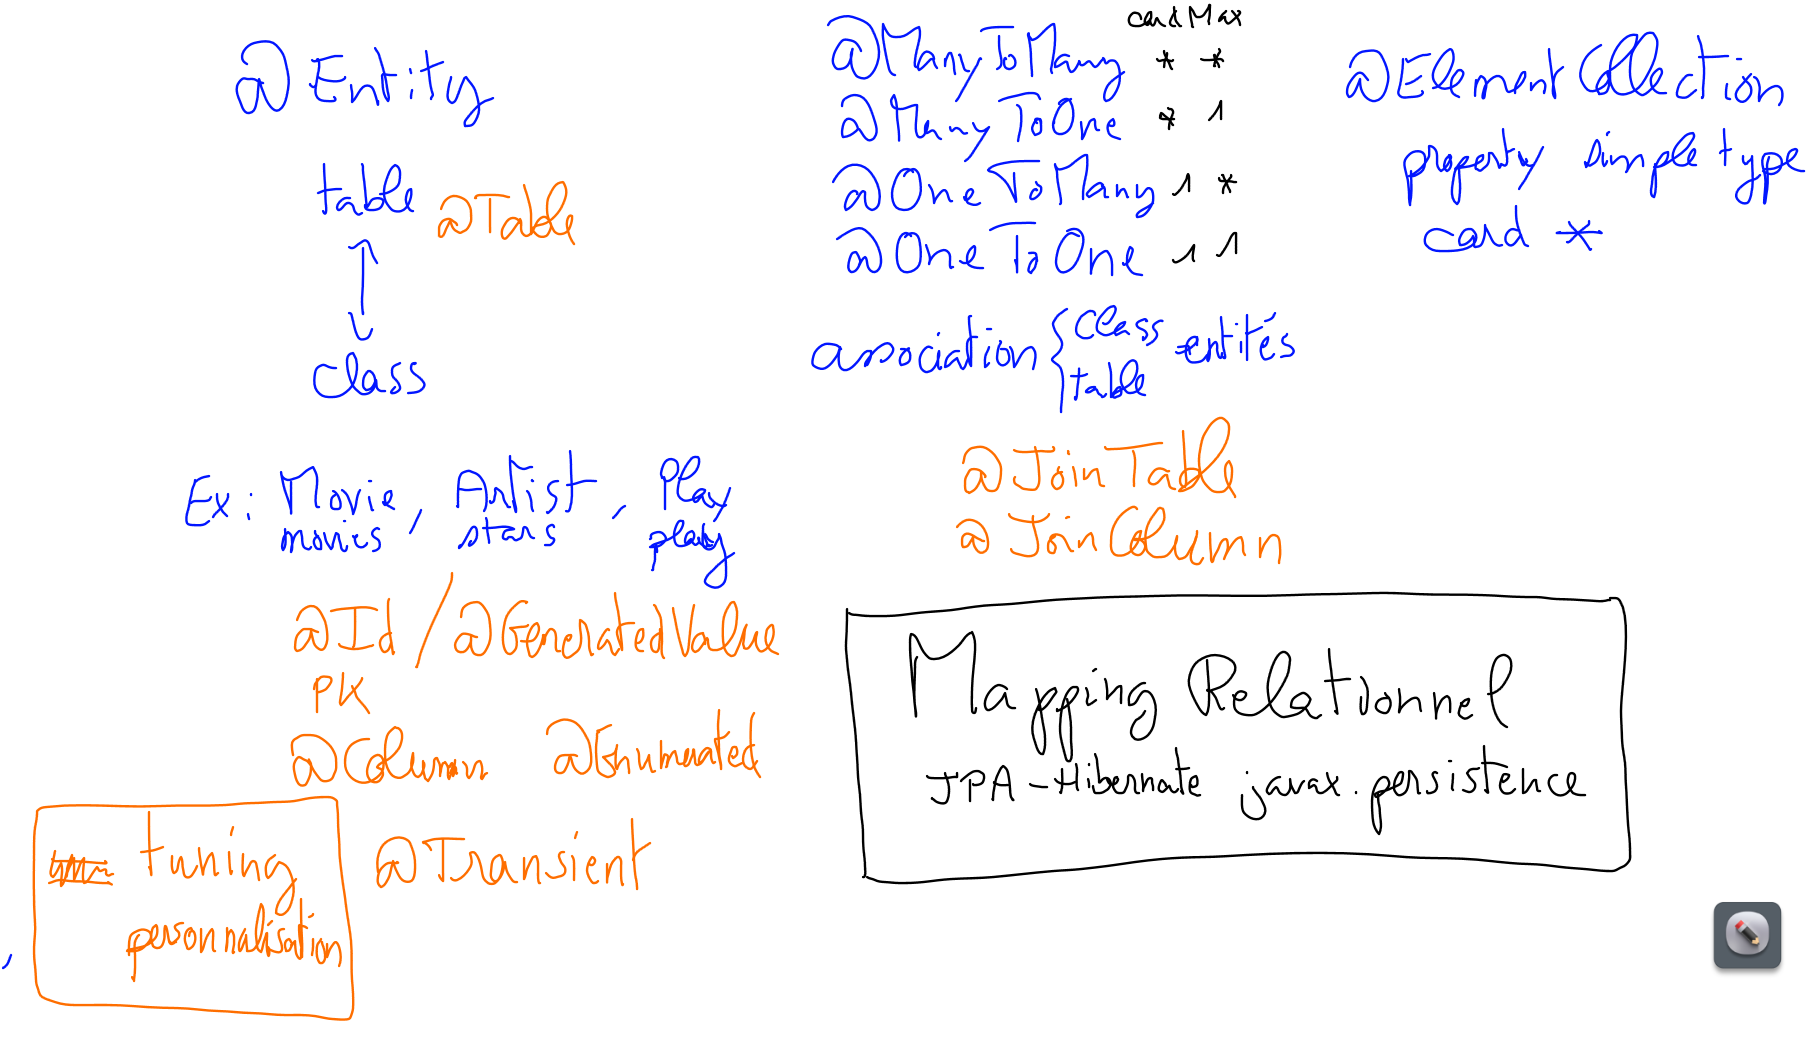 @Entity
table @Table
class
Ex: Movie, Artist, Play
movies stars play
@Id / @GeneratedValue
PK
@Column @Enumerated
tuning @Transient
personnalisation
cardMax
@ManyToMany * *
@ManyToOne * 1
@OneToMany 1 *
@OneToOne 1 1
association { class table entités
@JoinTable
@JoinColumn
@ElementCollection
property simple type
card *
Mapping Relationnel
JPA-Hibernate javax.persistence